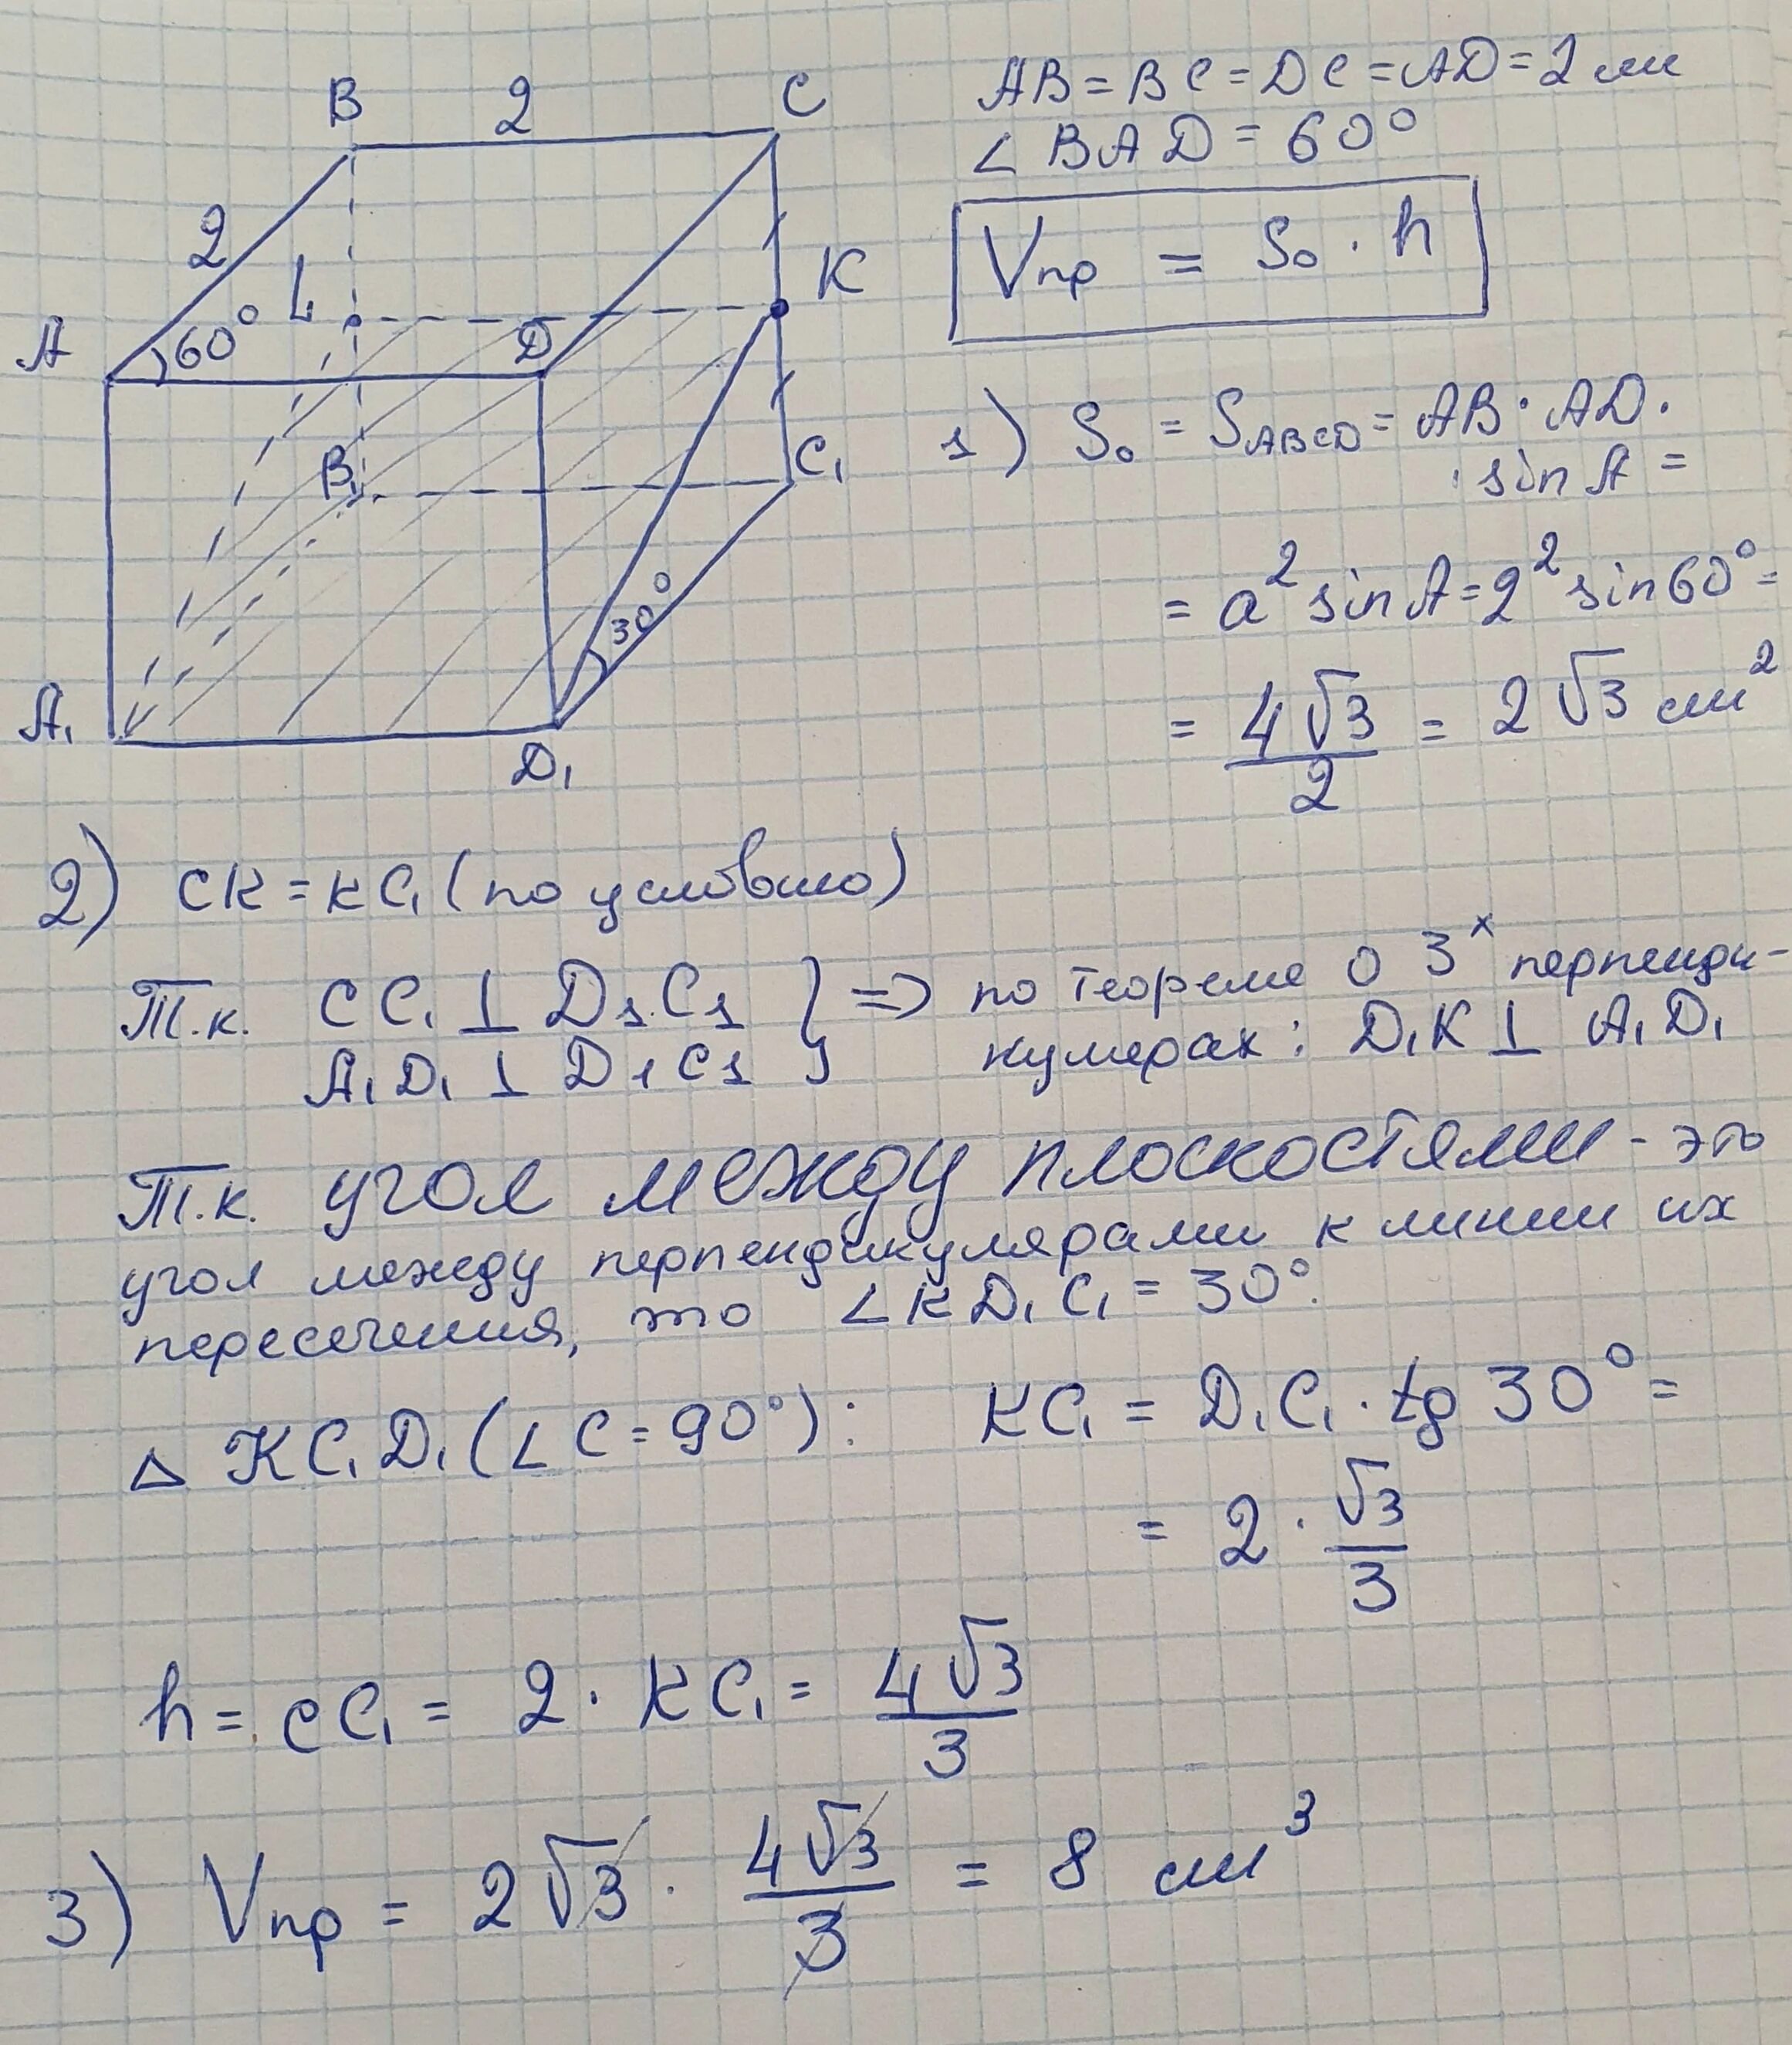 B 2 C
2
A 60° L D K
B₁ C₁
30°
A₁ D₁
AB = BC = DC = AD = 2 см
∠ BAD = 60°
Vпр = So · h
1) So = SABCD = AB · AD ·
· sin A =
= a² sin A = 2² sin 60° =
= 4√3/2 = 2√3 см²
2) CK = KC₁ (по условию)
Т.к. CC₁ ⊥ D₁C₁ } => по теореме о 3ˣ перпенди-
A₁D₁ ⊥ D₁C₁ кулярах: D₁K ⊥ A₁D₁
Т.к. угол между плоскостями - это
угол между перпендикулярами к линии их
пересечения, то ∠KD₁C₁ = 30°.
△ KC₁D₁ (∠C = 90°): KC₁ = D₁C₁ · tg 30° =
= 2 · √3/3
h = CC₁ = 2 · KC₁ = 4√3/3
3) Vпр = 2√3 · 4√3/3 = 8 см³